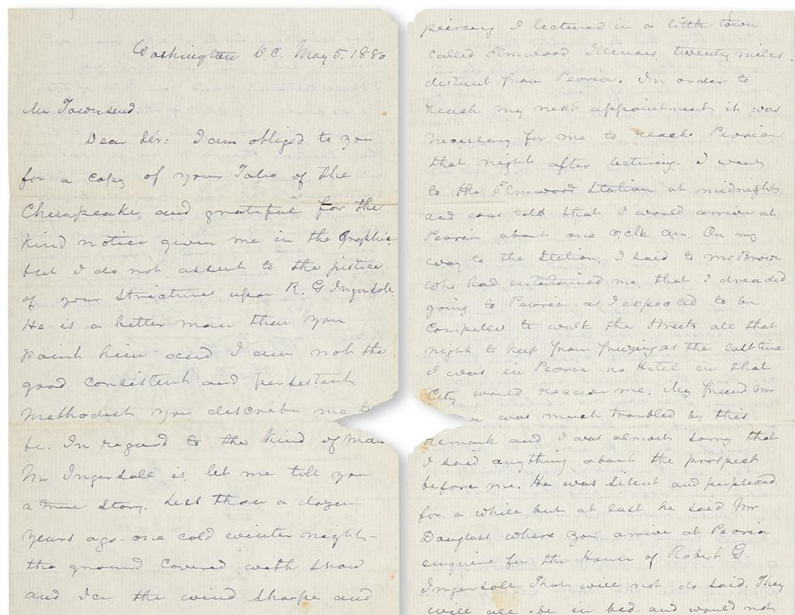 Washington D.C. May 5. 1880
Mr Townsend.
Dear Sir: I am obliged to you
for a copy of your Tales of the
Chesapeake, and grateful for the
kind notice given me in the Graphic
but I do not assent to the justice
of your Stricture upon R. G. Ingersoll.
He is a better man than you
paint him and I am not the
good consistent and persistant
Methodist you describe me to
be. In regard to the kind of man
Mr Ingersoll is, let me tell you
a true story. Less than a dozen
years ago - one cold winter night -
the ground covered with snow
and Ice the wind sharpe and
peircing I lectured in a little town
called Elmwood Illinois, twenty miles.
distant from Peoria. In order to
reach my next appointment it was
necessary for me to reach Peoria
that night after lecturing. I went
to the Elmwood Station at midnight
and was told that I would arrive at
Peoria about one oclk am. On my
way to the Station, I said to Mr Brown
who had entertained me, that I dreaded
going to Peoria as I expected to be
compelled to walk the streets all that
night to keep from freezing as the last time
I was in Peoria no Hotel in that
City would receive me. My friend Mr
was much troubled by this
remark and I was almost sorry that
I said anything about the prospect
before me. He was silent and perplexed
for a while but at last he said Mr
Douglass when you arrive at Peoria
enquire for the House of Robert G.
Ingersoll. That will not do said. They
will all be in bed and would not